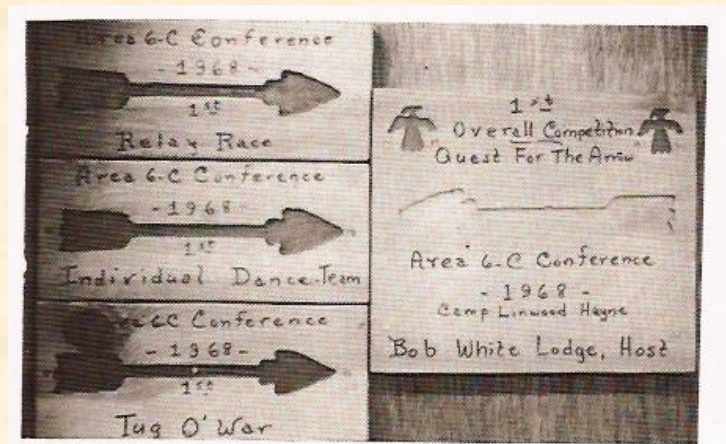 Area 6-C Conference
- 1968 -
1st
Relay Race
Area 6-C Conference
- 1968 -
1st
Individual Dance Team
6C Conference
- 1968 -
1st
Tug O' War
1st
Overall Competition
Quest For The Arrow
Area 6-C Conference
- 1968 -
Camp Linwood Hayne
Bob White Lodge, Host